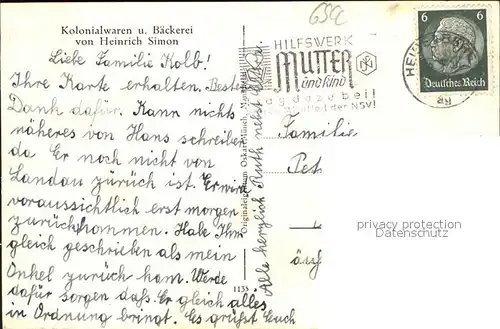 Kolonialwaren u. Bäckerei
von Heinrich Simon
Liebe Familie Kolb!
Ihre Karte erhalten. Besten
Dank dafür. Kann nichts
näheres von Hans schreiben
da Er noch nicht von
Landau zurück ist. Er wird
voraussichtlich erst morgen
zurückkommen. Habe Ihm
gleich geschrieben als mein
Onkel zurück kam. Werde
dafür sorgen daß Er gleich alles
in Ordnung bringt. Es grüßt Euch
Alle herzlich Ruth nebst
Originaleigentum Oskar
1135
HILFSWERK
MUTTER
und Kind
der NSV!
6 6
Deutsches Reich
Familie
Pet
privacy protection